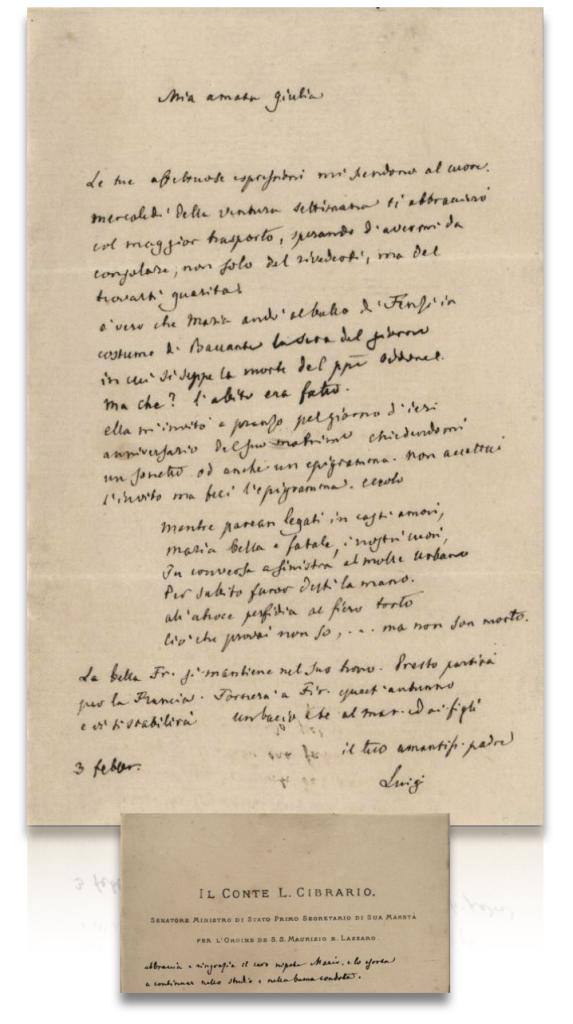 Mia amata Giulia
Le tue affettuose espressioni mi scendono al cuore.
mercoledi della ventura settimana ti abbraccierò
col maggior trasporto, sperando d'avermi da
consolare, non solo del rivederti, ma del
trovarti guarita.
è vero che Maria andò al ballo di in
costume di Baccante la sera del giorno
in cui si seppe la morte del Oddone.
Ma che? l'abito era fatto.
ella m'invitò a pranzo pel giorno d'ieri
anniversario del suo chiedendomi
un sonetto od anche un epigramma. non accettai
l'invito ma feci l'epigramma. eccolo
Mentre parean legati in casti amori,
Maria bella e fatale, i nostri cuori,
Tu a sinistra al molle urbano
Per subito furor desti la mano.
all'atroce perfidia al fiero torto
Ciò che provai non so, ... ma non son morto.
La bella Fr. si mantiene nel suo trono. Presto partirà
per la Francia. Tornerà a Fir. quest'autunno
e vi si stabilirà un bacio a te al mar. ed ai figli
il tuo amantis. padre
3 febbr. Luigi
IL CONTE L. CIBRARIO.
SENATORE MINISTRO DI STATO PRIMO SEGRETARIO DI SUA MAESTÀ
PER L'ORDINE DE S.S. MAURIZIO E LAZZARO.
abbraccia e ringrazia il caro nipote Mario, e lo esorta
a continuar nello studio e nella buona condotta.